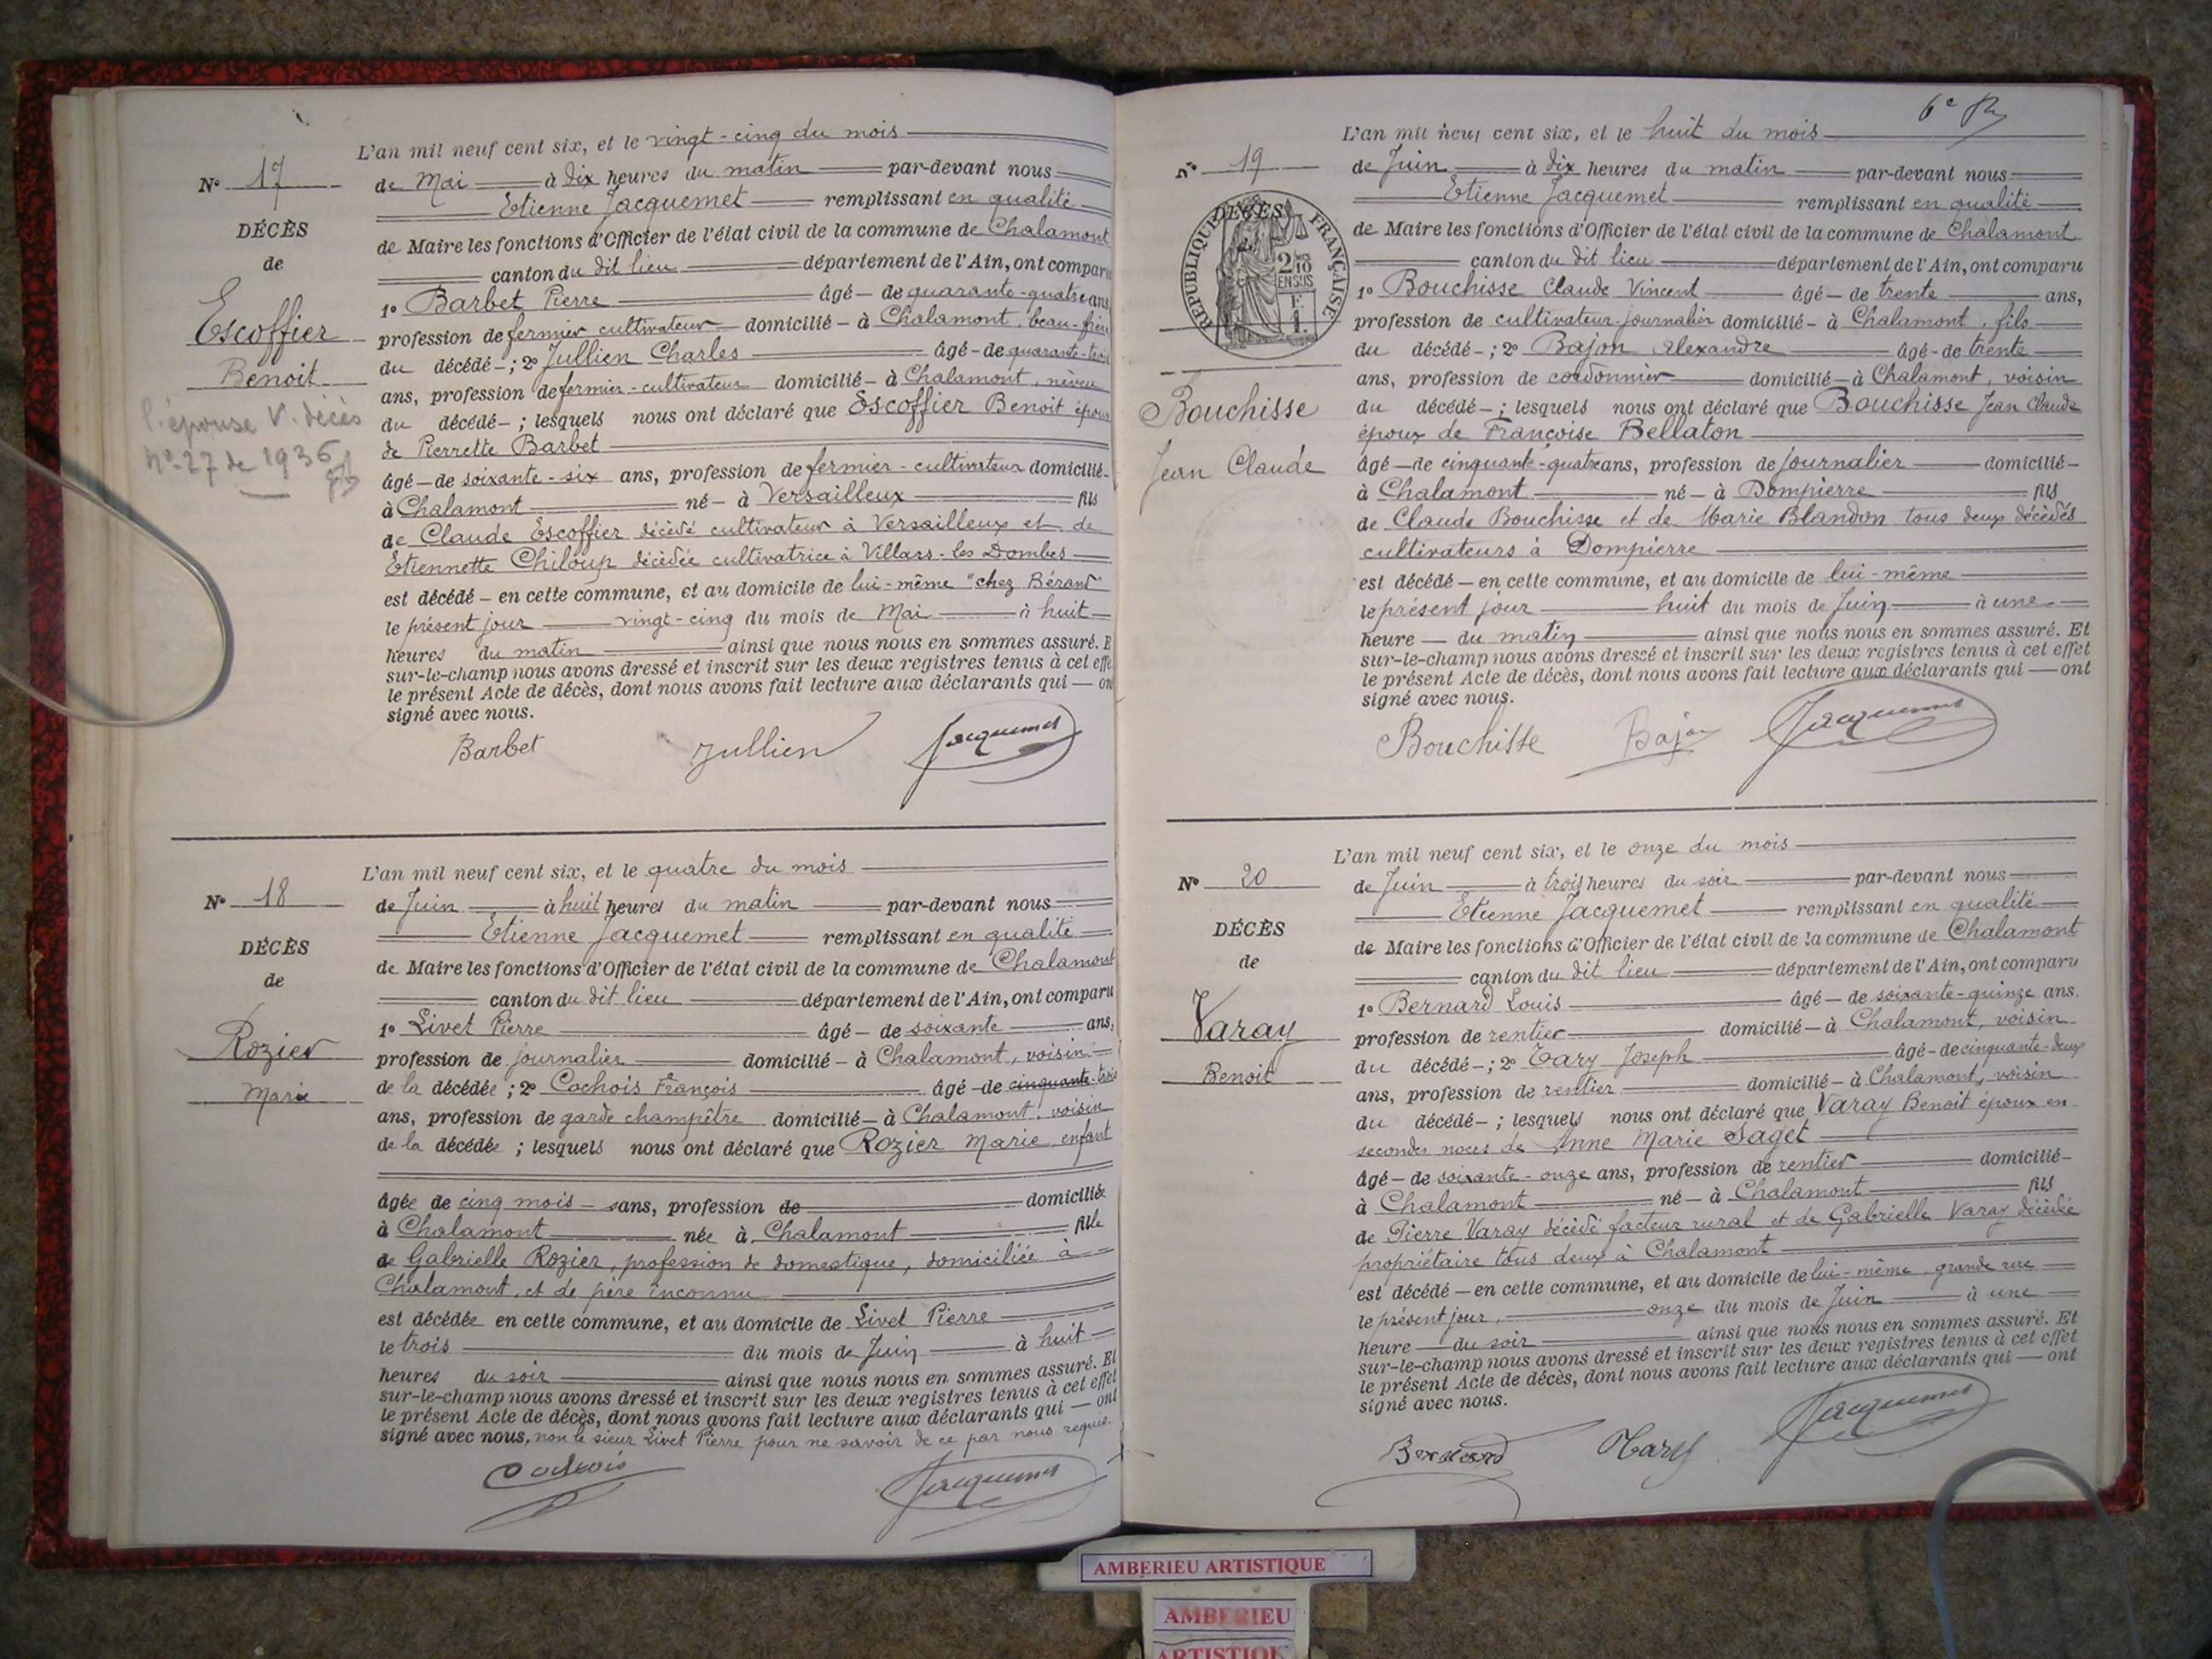 Nº 17
DÉCÈS
de
Escoffier
Benoit
l'épouse V. décès
nº 27 de 1936
L'an mil neuf cent six, et le vingt-cinq du mois
de Mai à dix heures du matin par-devant nous
Etienne Jacquemet remplissant en qualité
de Maire les fonctions d'Officier de l'état civil de la commune de Chalamont
canton du dit lieu département de l'Ain, ont comparu
1º Barbet Pierre âgé - de quarante-quatre ans
profession de fermier cultivateur domicilié - à Chalamont, beau-frère
du décédé - ; 2º Jullien Charles âgé - de quarante-trois
ans, profession de fermier-cultivateur domicilié - à Chalamont, neveu
du décédé - ; lesquels nous ont déclaré que Escoffier Benoit époux
de Pierrette Barbet
âgé - de soixante-six ans, profession de fermier-cultivateur domicilié -
à Chalamont né - à Versailleux fils
de Claude Escoffier décédé cultivateur à Versailleux et de
Etiennette Chiloup décédée cultivatrice à Villars-les Dombes
est décédé - en cette commune, et au domicile de lui-même "chez Bérand"
le présent jour vingt-cinq du mois de Mai à huit
heures du matin ainsi que nous nous en sommes assuré. E
sur-le-champ nous avons dressé et inscrit sur les deux registres tenus à cet effe
le présent Acte de décès, dont nous avons fait lecture aux déclarants qui - on
signé avec nous.
Barbet Jullien Jacquemet
Nº 18
DÉCÈS
de
Rozier
Marie
L'an mil neuf cent six, et le quatre du mois
de Juin à huit heures du matin par-devant nous
Etienne Jacquemet remplissant en qualité
de Maire les fonctions d'Officier de l'état civil de la commune de Chalamont
canton du dit lieu département de l'Ain, ont comparu
1º Livet Pierre âgé - de soixante ans,
profession de journalier domicilié - à Chalamont, voisin
de la décédée ; 2º Cochois François âgé - de cinquante-trois
ans, profession de garde champêtre domicilié - à Chalamont, voisin
de la décédée ; lesquels nous ont déclaré que Rozier Marie, enfant
âgée de cinq mois - sans, profession de domiciliée
à Chalamont née à Chalamont fille
de Gabrielle Rozier, profession de domestique, domiciliée à
Chalamont, et de père inconnu
est décédée en cette commune, et au domicile de Livet Pierre
le trois du mois de Juin à huit
heures du soir ainsi que nous nous en sommes assuré. Et
sur-le-champ nous avons dressé et inscrit sur les deux registres tenus à cet effet
le présent Acte de décès, dont nous avons fait lecture aux déclarants qui - ont
signé avec nous, non le sieur Livet Pierre pour ne savoir de ce par nous requis.
Cochois Jacquemet
6e
Nº 19
DÉCÈS
de
RÉPUBLIQUE FRANÇAISE
2/10 EN SUS
Bouchisse
Jean Claude
L'an mil neuf cent six, et le huit du mois
de Juin à dix heures du matin par-devant nous
Etienne Jacquemet remplissant en qualité
de Maire les fonctions d'Officier de l'état civil de la commune de Chalamont
canton du dit lieu département de l'Ain, ont comparu
1º Bouchisse Claude Vincent âgé - de trente ans,
profession de cultivateur-journalier domicilié - à Chalamont, fils
du décédé - ; 2º Bajon Alexandre âgé - de trente
ans, profession de cordonnier domicilié - à Chalamont, voisin
du décédé - ; lesquels nous ont déclaré que Bouchisse Jean Claude
époux de Françoise Bellaton
âgé - de cinquante-quatre ans, profession de journalier domicilié -
à Chalamont né - à Dompierre fils
de Claude Bouchisse et de Marie Blandon tous deux décédés
cultivateurs à Dompierre
est décédé - en cette commune, et au domicile de lui-même
le présent jour huit du mois de Juin à une
heure - du matin ainsi que nous nous en sommes assuré. Et
sur-le-champ nous avons dressé et inscrit sur les deux registres tenus à cet effet
le présent Acte de décès, dont nous avons fait lecture aux déclarants qui - ont
signé avec nous.
Bouchisse Bajon Jacquemet
Nº 20
DÉCÈS
de
Varay
Benoit
L'an mil neuf cent six, et le onze du mois
de Juin à trois heures du soir par-devant nous
Etienne Jacquemet remplissant en qualité
de Maire les fonctions d'Officier de l'état civil de la commune de Chalamont
canton du dit lieu département de l'Ain, ont comparu
1º Bernard Louis âgé - de soixante-quinze ans.
profession de rentier domicilié - à Chalamont, voisin
du décédé - ; 2º Tary Joseph âgé - de cinquante-deux
ans, profession de rentier domicilié - à Chalamont, voisin
du décédé - ; lesquels nous ont déclaré que Varay Benoit époux en
secondes noces de Anne Marie Saget
âgé - de soixante-onze ans, profession de rentier domicilié -
à Chalamont né - à Chalamont fils
de Pierre Varay décédé facteur rural et de Gabrielle Varay décédée
propriétaire tous deux à Chalamont
est décédé - en cette commune, et au domicile de lui-même, grande rue
le présent jour, onze du mois de Juin à une
heure du soir ainsi que nous nous en sommes assuré. Et
sur-le-champ nous avons dressé et inscrit sur les deux registres tenus à cet effet
le présent Acte de décès, dont nous avons fait lecture aux déclarants qui - ont
signé avec nous.
Bernard Tary Jacquemet
AMBERIEU ARTISTIQUE
AMBERIEU
ARTISTIQUE